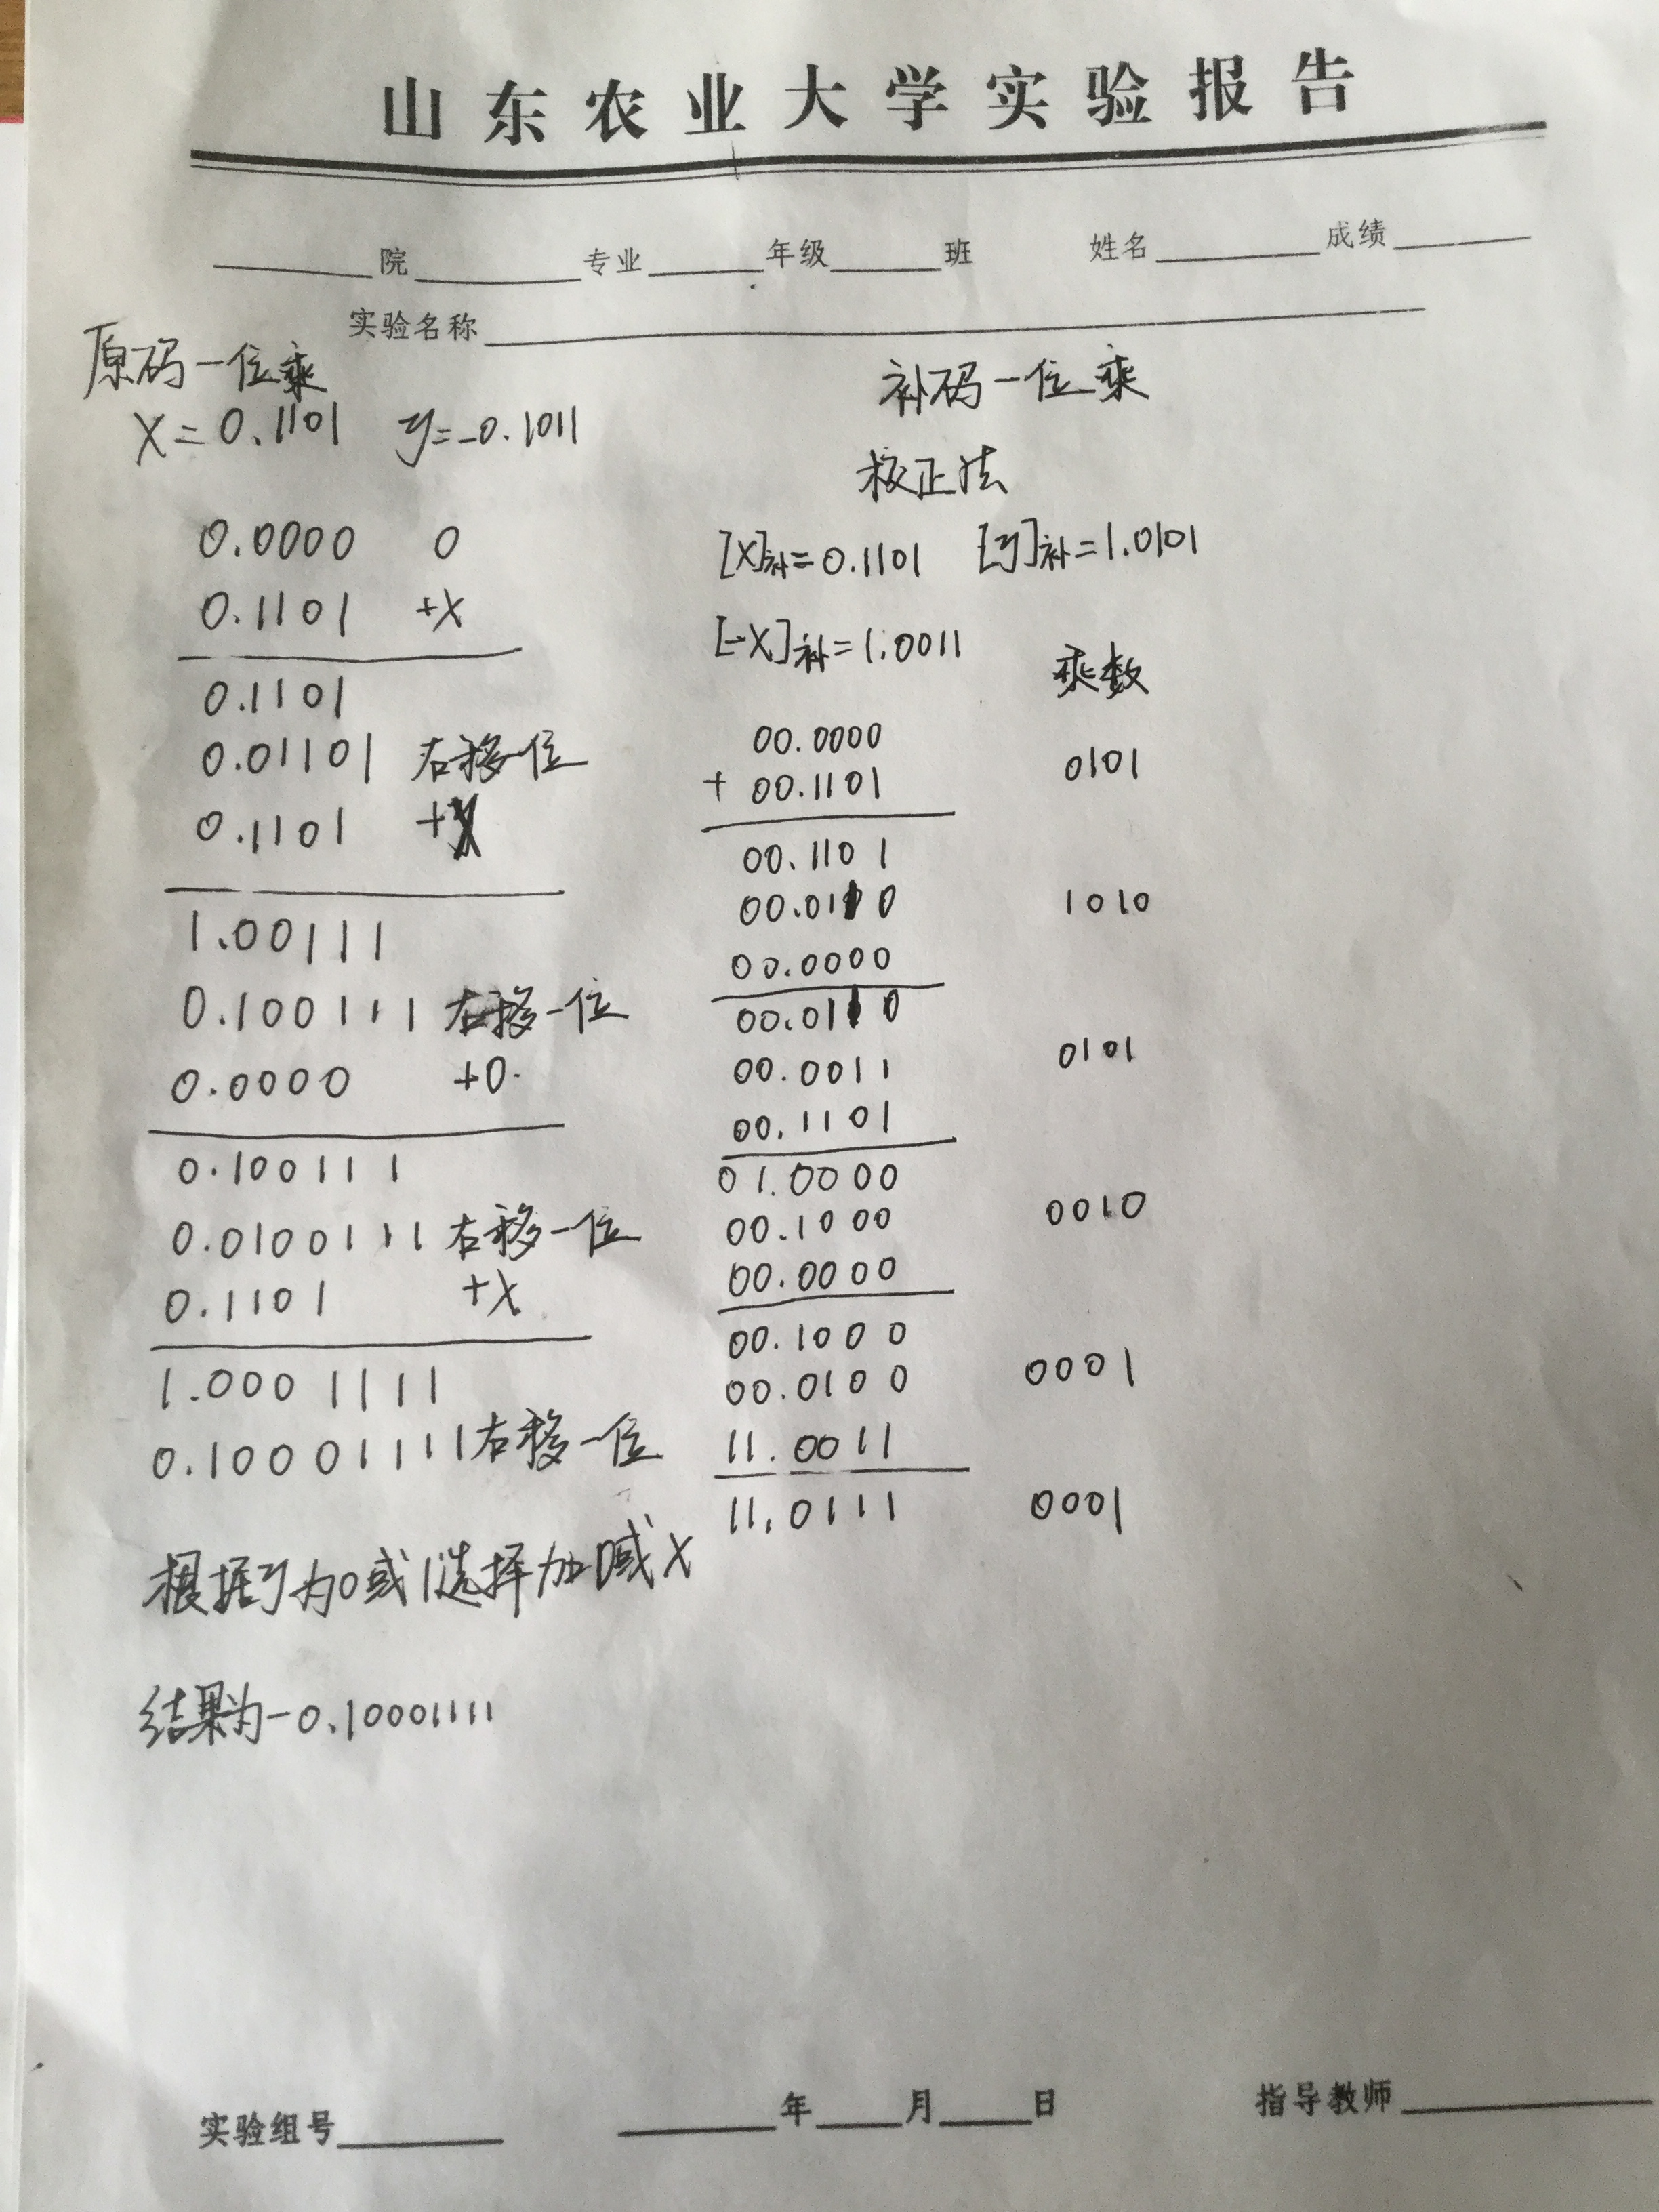 山东农业大学实验报告
院 专业 年级 班 姓名 成绩
实验名称
原码一位乘
X=0.1101 y=-0.1011
0.0000 0
0.1101 +X
0.1101
0.01101 右移一位
0.1101 +X
1.00111
0.100111 右移一位
0.0000 +0.
0.100111
0.0100111 右移一位
0.1101 +X
1.0001111
0.10001111 右移一位
根据y为0或1选择加0或X
结果为-0.10001111
补码一位乘
校正法
[X]补=0.1101 [y]补=1.0101
[-X]补=1.0011
乘数
00.0000
+ 00.1101 0101
00.1101
00.0110 1010
00.0000
00.0110
00.0011 0101
00.1101
01.0000
00.1000 0010
00.0000
00.1000
00.0100 0001
11.0011
11.0111 0001
实验组号 年 月 日 指导教师